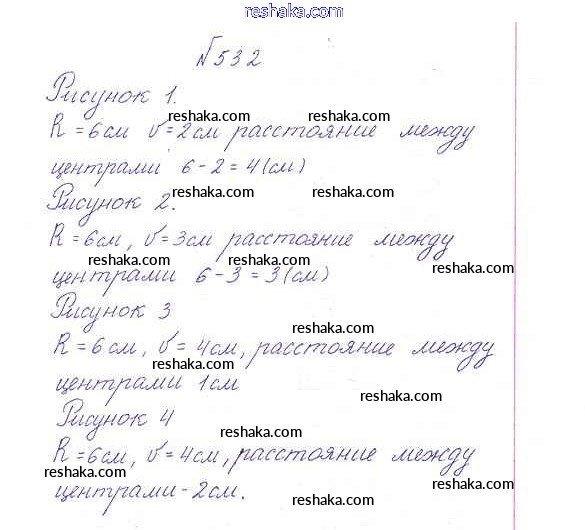 reshaka.com
№532
Рисунок 1.
reshaka.com reshaka.com
R = 6см r = 2см расстояние между
центрами 6-2 = 4(см)
reshaka.com reshaka.com
Рисунок 2.
R = 6см, r = 3см расстояние между
reshaka.com reshaka.com reshaka.com
центрами 6-3 = 3(см)
Рисунок 3
reshaka.com
R = 6см, r = 4см, расстояние между
reshaka.com
центрами 1см
reshaka.com
Рисунок 4
reshaka.com
R = 6см, r = 4см, расстояние между
reshaka.com reshaka.com
центрами - 2см.
reshaka.com